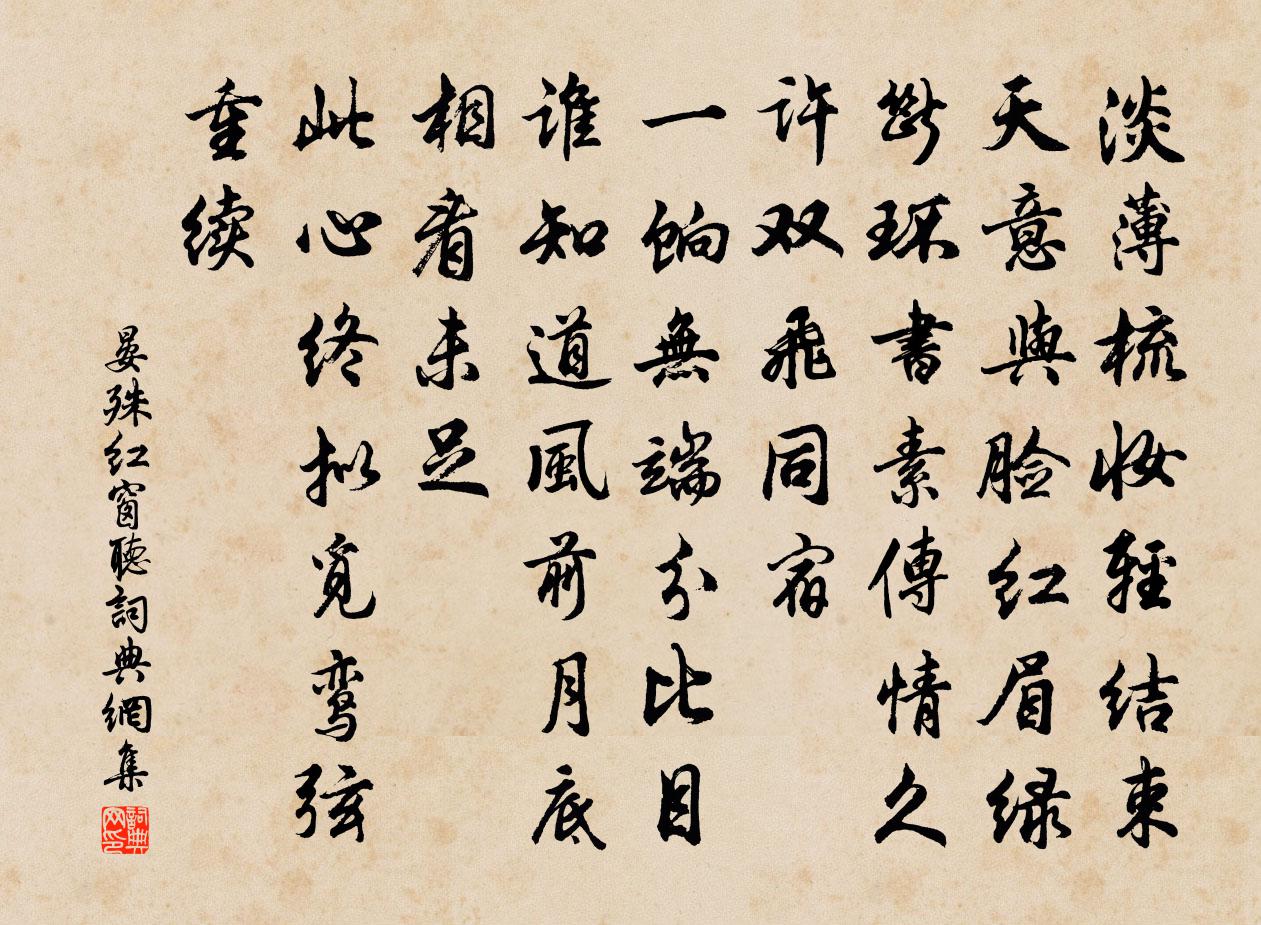 淡薄梳妆輕结束
天意與脸红眉绿
斷环書素傳情久
许双飛同宿
一饷無端分比目
谁知道風前月底
相看未足
此心终拟觅鸾弦
重续
晏殊红窗聽詞典網集
詞典网印